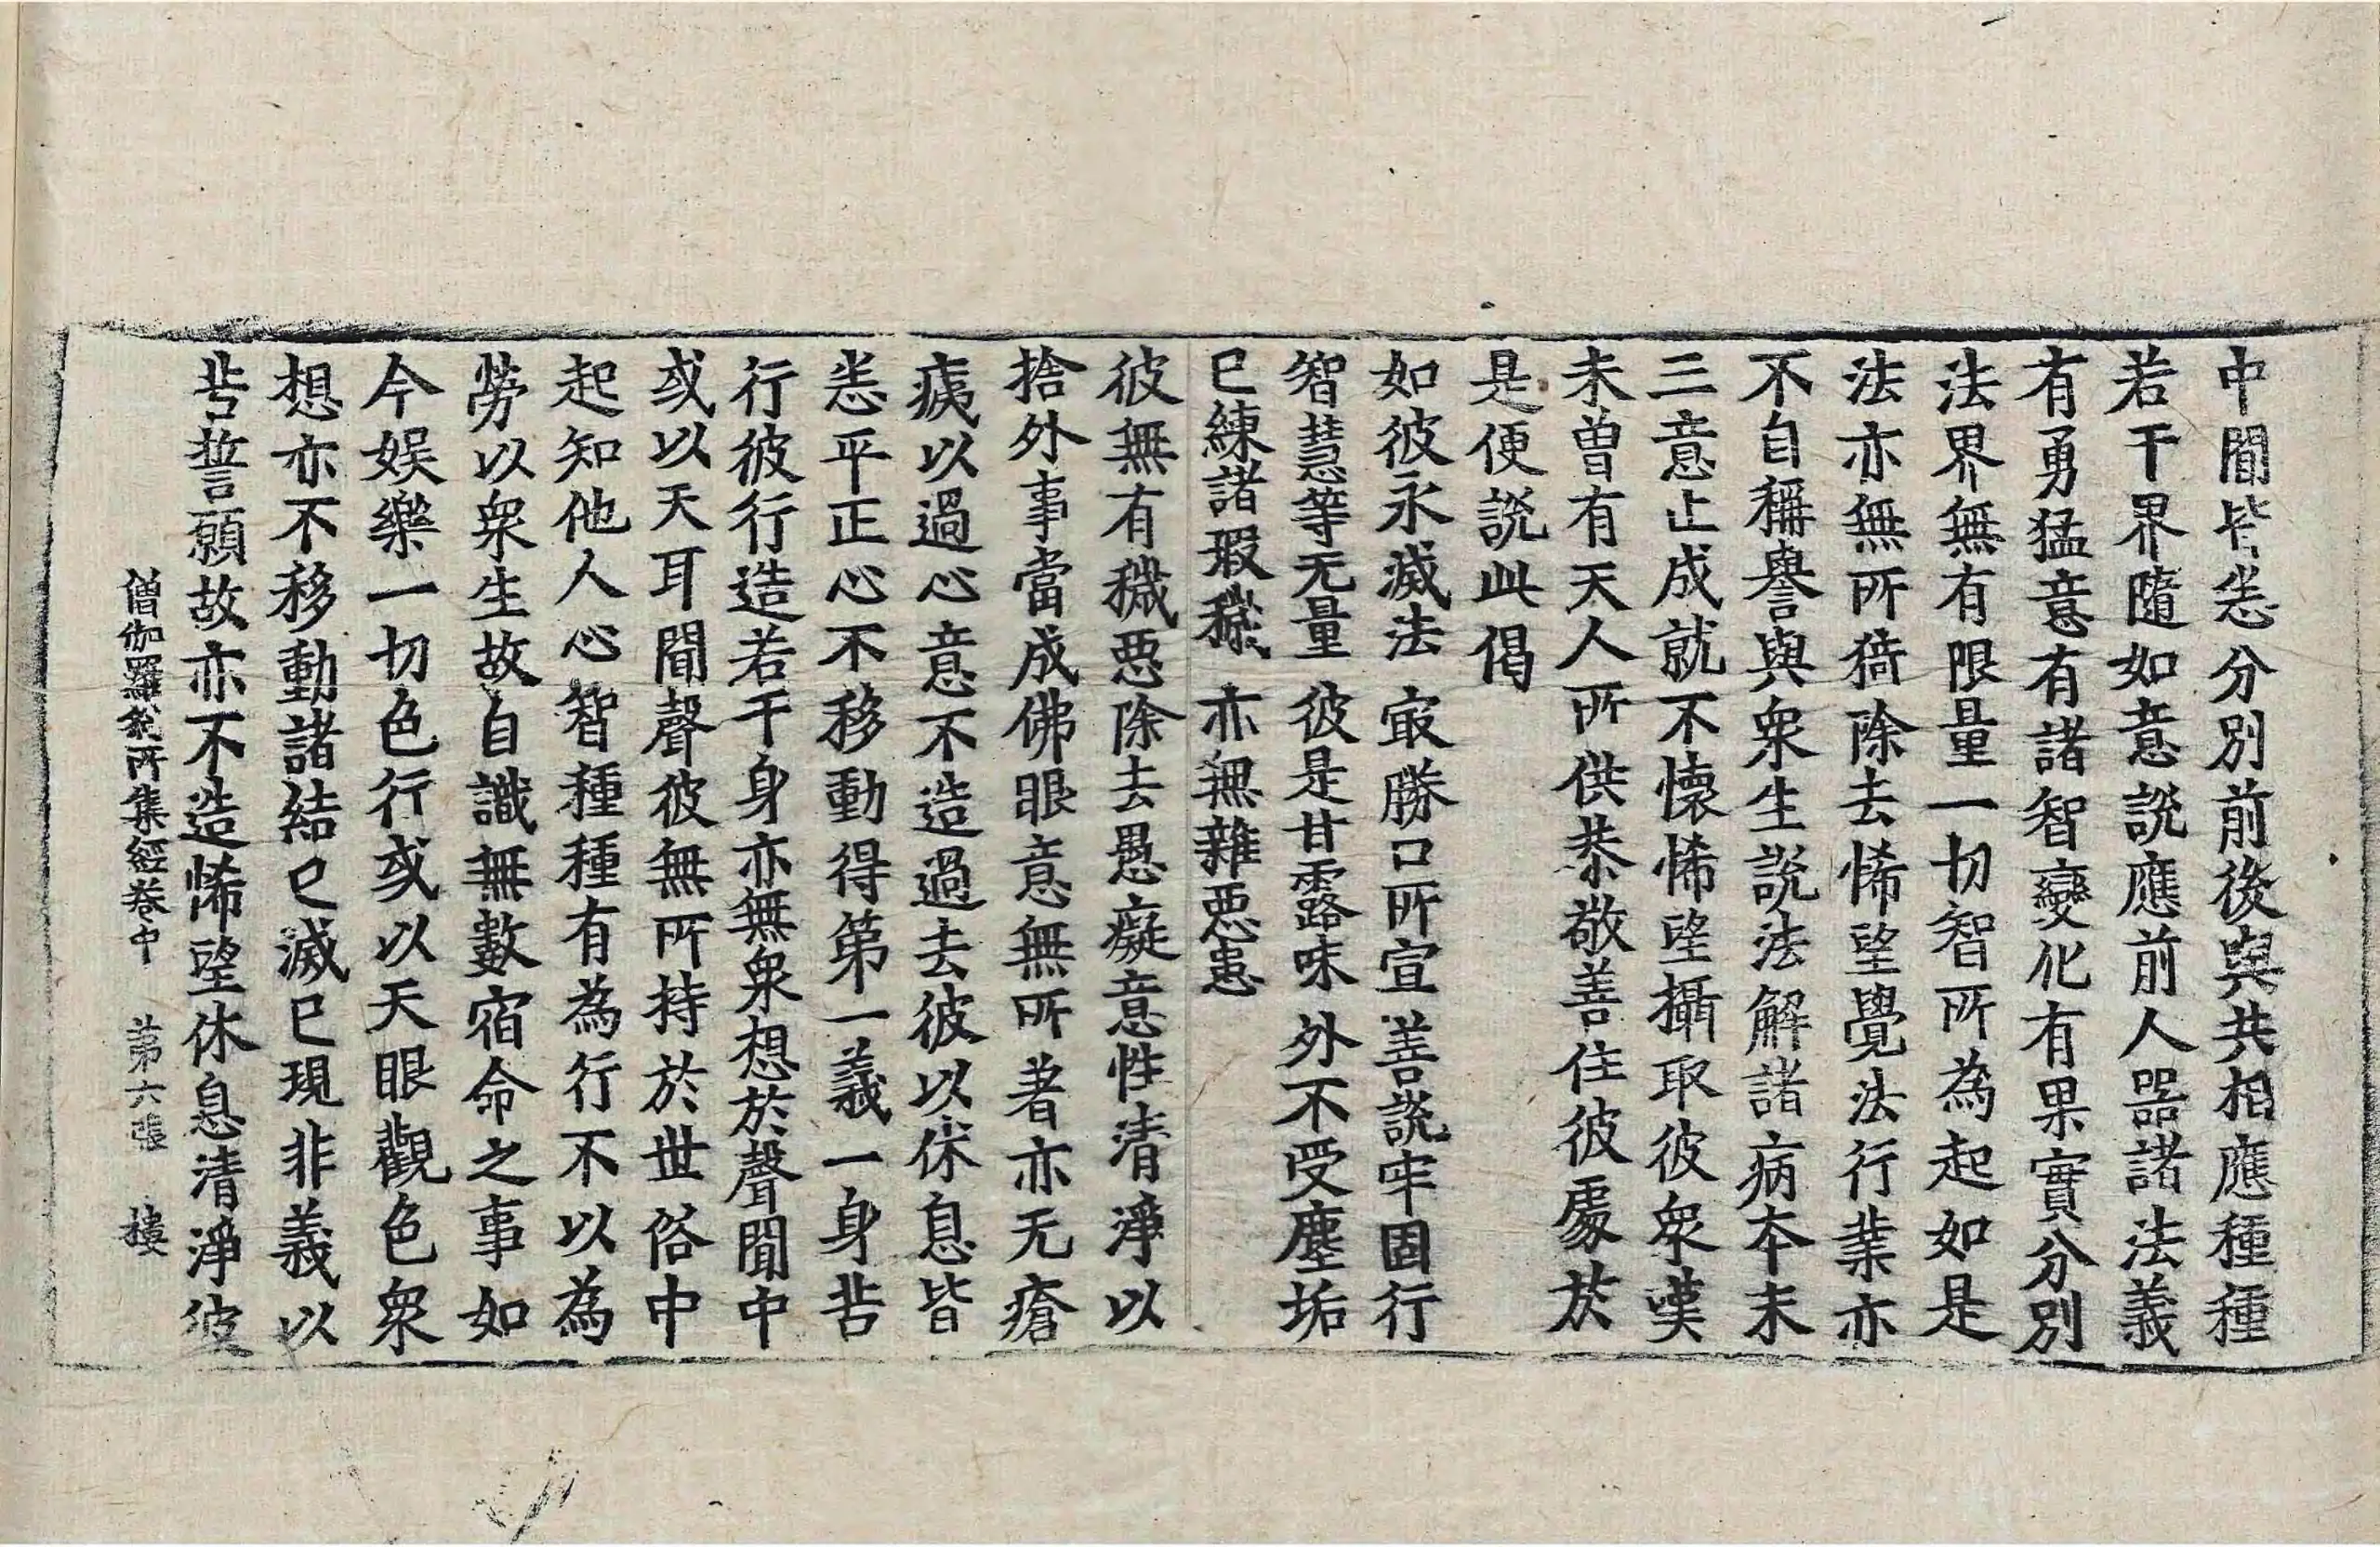 中間皆悉分別前後與共相應種種
若干界隨如意說應前人器諸法義
有勇猛意有諸智變化有果實分別
法界無有限量一切智所為起如是
法亦無所猗除去悕望覺法行業亦
不自稱譽與眾生說法解諸病本末
三意止成就不懷悕望攝取彼眾嘆
未曾有天人所供恭敬善住彼處於
是便說此偈
如彼永滅法 㝡勝口所宣 善說牢固行
智慧等无量 彼是甘露味 外不受塵垢
已練諸瑕穢 亦無雜惡患
彼無有穢惡除去愚癡意性清淨以
捨外事當成佛眼意無所著亦无瘡
痍以過心意不造過去彼以休息皆
悉平正心不移動得第一義一身苦
行彼行造若干身亦無眾想於聲聞中
或以天耳聞聲彼無所持於世俗中
起知他人心智種種有為行不以為
勞以眾生故自識無數宿命之事如
今娛樂一切色行或以天眼觀色眾
想亦不移動諸結已滅已現非義以
苦誓願故亦不造悕望休息清淨彼
僧伽羅剎所集經卷中 第六張 樓